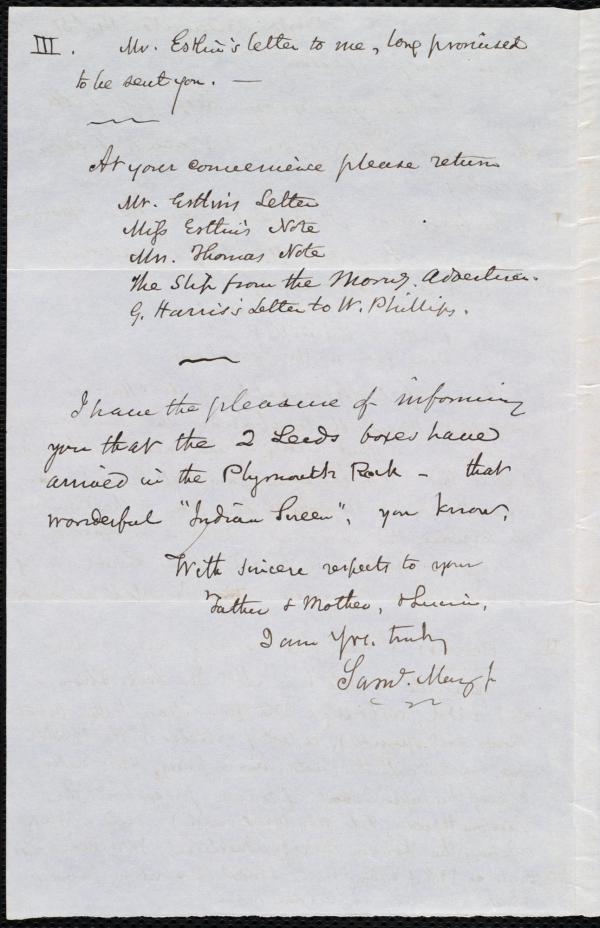 III. Mr. Estlin's letter to me, long promised
to be sent you. —
At your convenience please return
Mr. Estlin's Letter
Miss Estlin's Note
Mrs. Thomas Note
The Slip from the Morng. Advertiser.
G. Harris's Letter to W. Phillips.
I have the pleasure of informing
you that the 2 Leeds boxes have
arrived in the Plymouth Rock – that
wonderful "Indian Screen", you know.
With sincere respects to your
Father & Mother, & Lucia,
I am Yrs. truly
Saml. May Jr